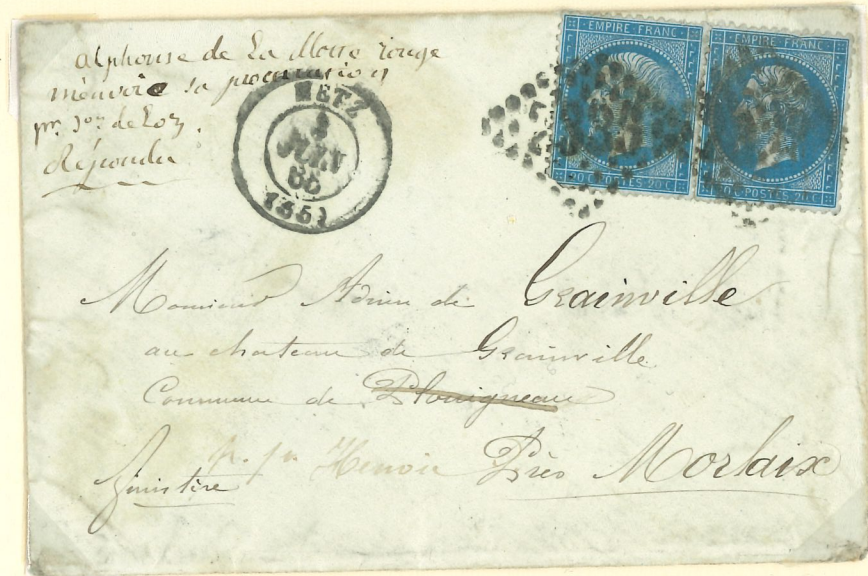 alphonse de La Moire rouge
m'envoie sa procuration
pr
de Loz.
Répondu
METZ
JUIN
(55)
EMPIRE FRANC
20 C POSTES 20 C
EMPIRE FRANC
20 C POSTES 20 C
Monsieur Adrien de Grainville
au chateau de Grainville
Commune de Plouigneau
Près Morlaix
finistère